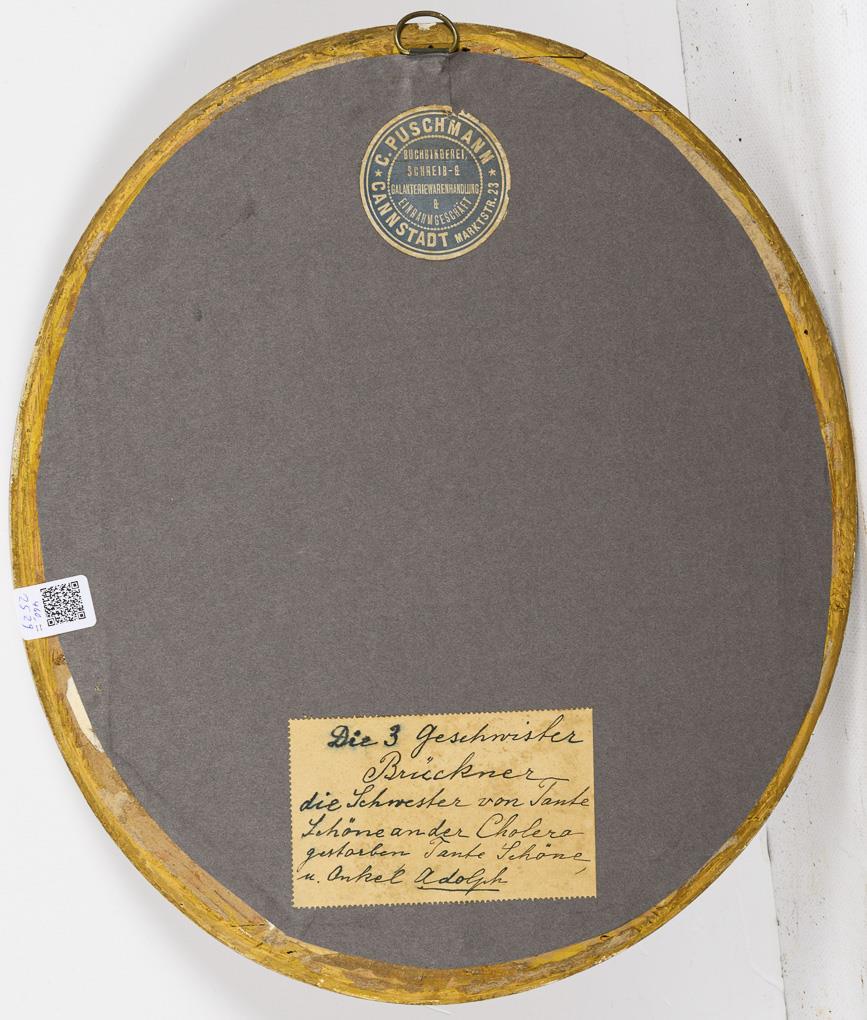 C. PUSCHMANN
BUCHBINDEREI,
SCHREIB- &
GALANTERIEWARENHANDLUNG
&
EINRAHMGESCHÄFT
CANNSTADT MARKTSTR. 23
2529
Die 3 Geschwister
Brückner
die Schwester von Tante
Schöne an der Cholera
gestorben Tante Schöne,
u. Onkel Adolph